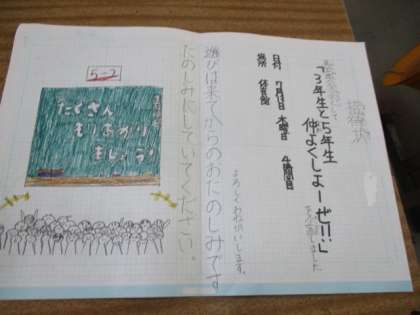 招待状
「3年生と5年生
仲よくしよーぜ!!」
を企画しました
日付 7月1日 木曜日 4時間目
場所 体育館
よろしくおねがいします。
遊びは来てからのおたのしみです
たのしみにしていてください。
5-2
たくさん
もりあがり
ましょう!